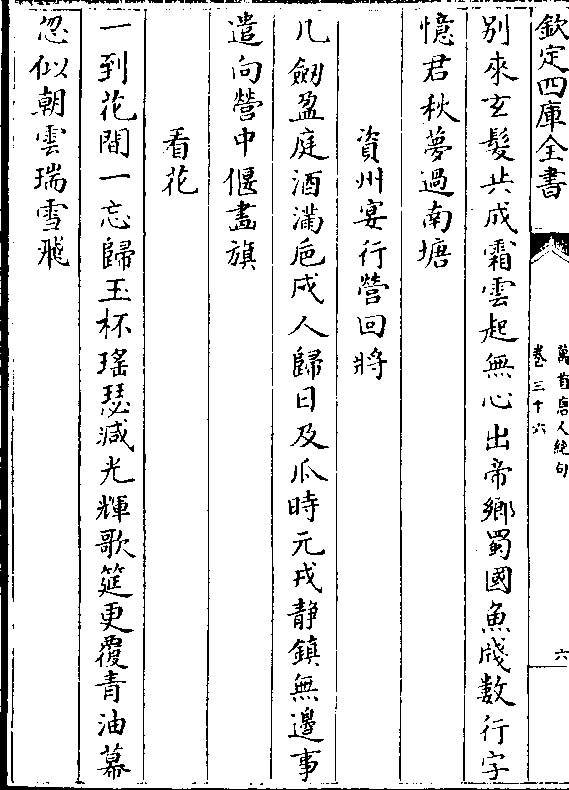 欽定四庫全書
萬首唐人絶句
卷三十六
六
别來玄髮共成霜雲起無心出帝鄉蜀國魚牋數行字
憶君秋夢過南塘
資州宴行營回將
几劒盈庭酒滿巵戍人歸日及瓜時元戎静鎮無邊事
遣向營中偃畫旗
看花
一到花間一忘歸玉杯瑤瑟减光輝歌筵更覆青油幕
忽似朝雲瑞雪飛